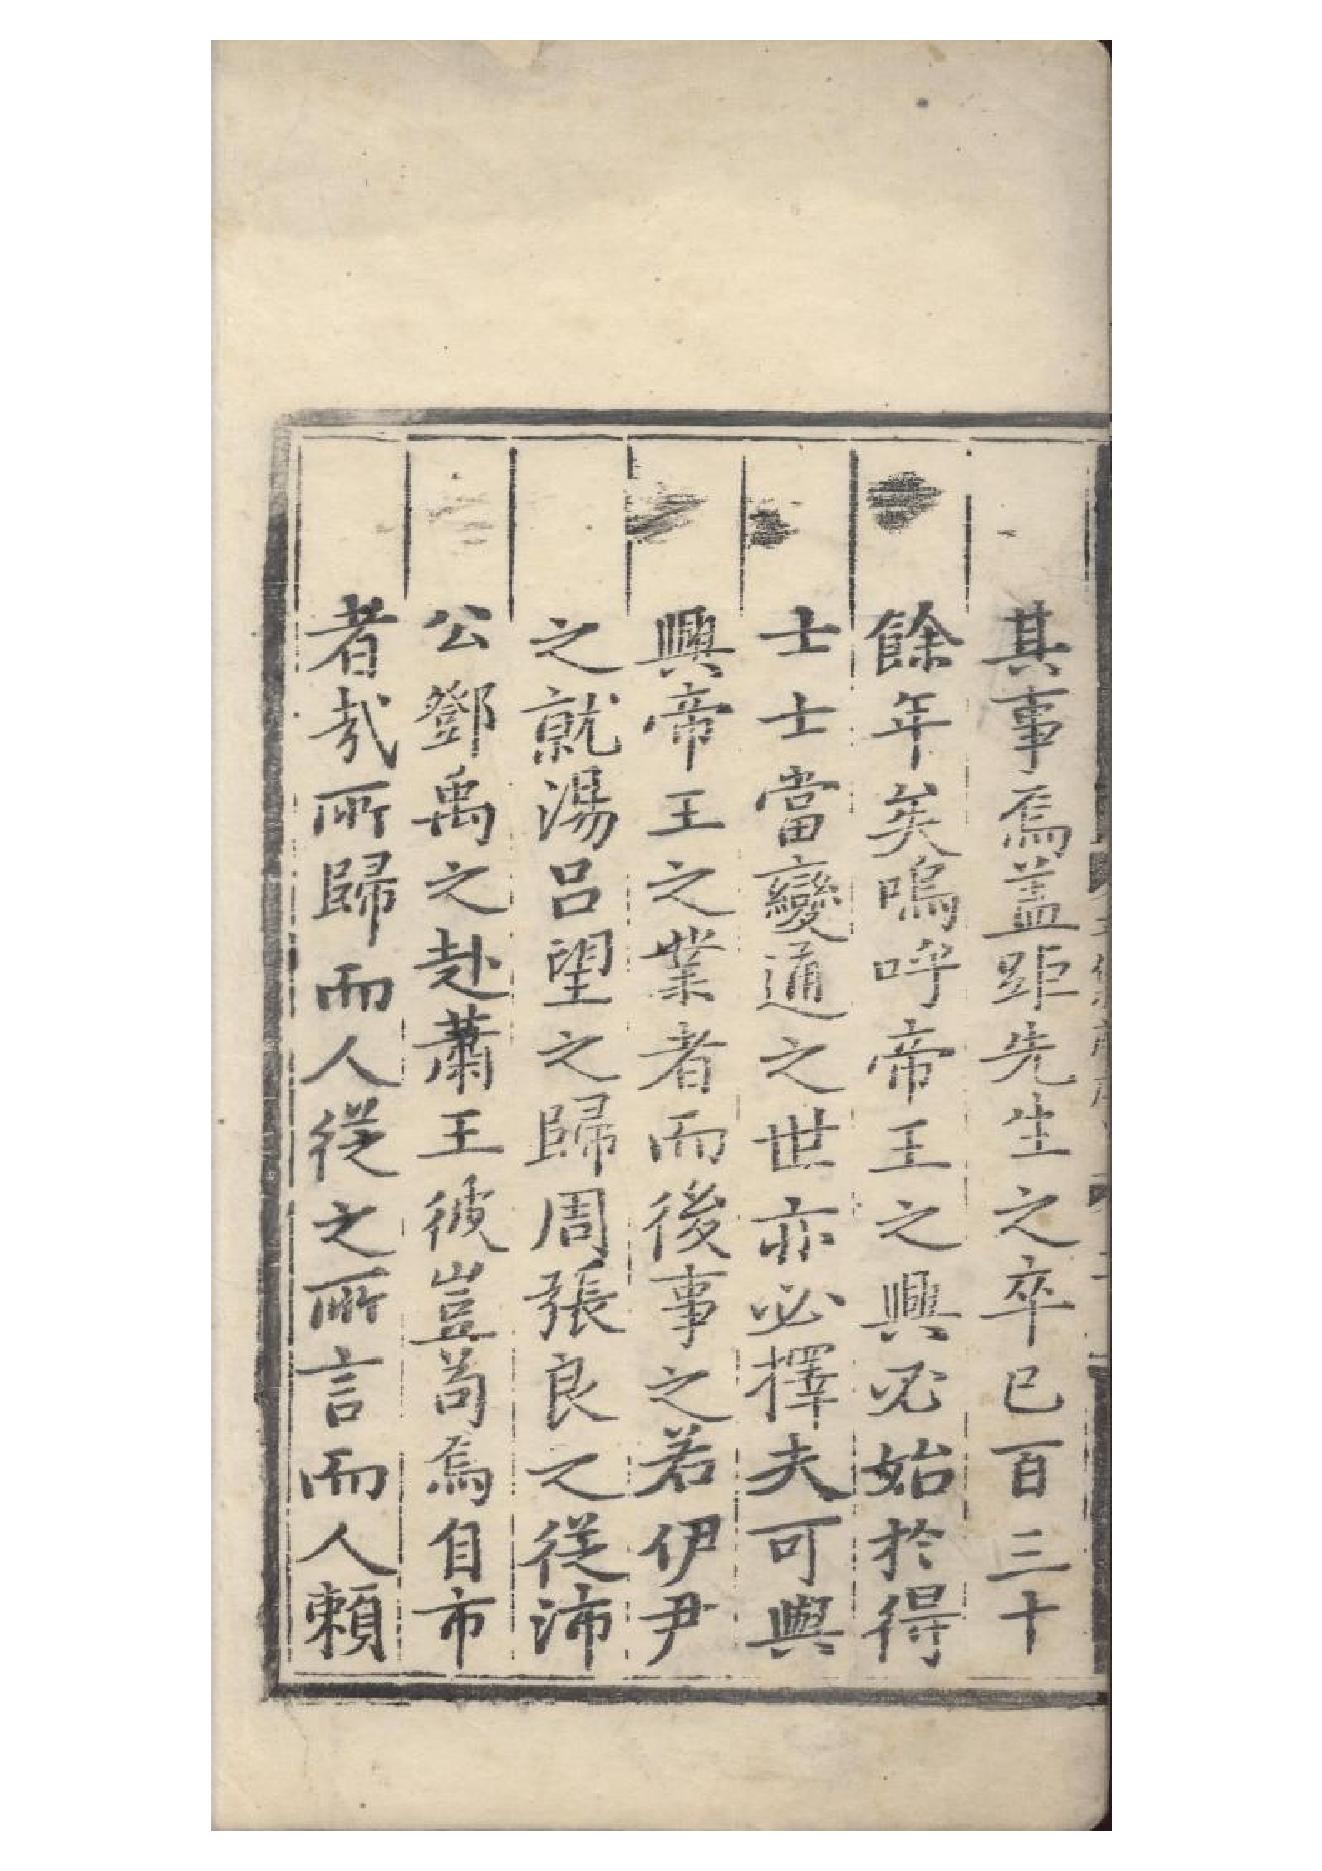 其事焉蓋距先生之卒已百三十
餘年矣嗚呼帝王之興必始於得
士士當變通之世亦必擇夫可與
興帝王之業者而後事之若伊尹
之就湯呂望之歸周張良之從沛
公鄧禹之赴蕭王彼豈苟焉自市
者㢤所歸而人從之所言而人賴